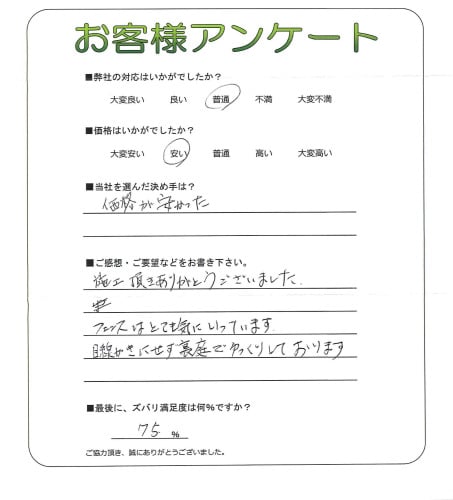 お客様アンケート
■弊社の対応はいかがでしたか？
大変良い 良い 普通 不満 大変不満
■価格はいかがでしたか？
大変安い 安い 普通 高い 大変高い
■当社を選んだ決め手は？
価格が安かった
■ご感想・ご要望などをお書き下さい。
施工頂きありがとうございました.
フェンスはとても気にいっています.
目線気にせず裏庭でゆっくりしております
■最後に、ズバリ満足度は何％ですか？
75 ％
ご協力頂き、誠にありがとうございました。